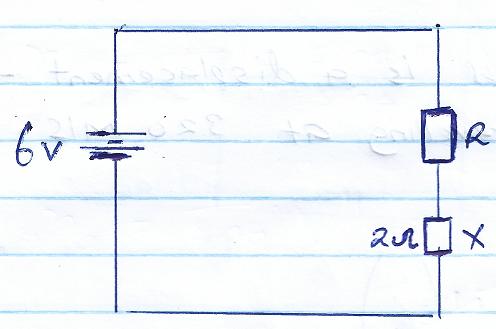 6v
R
2Ω X